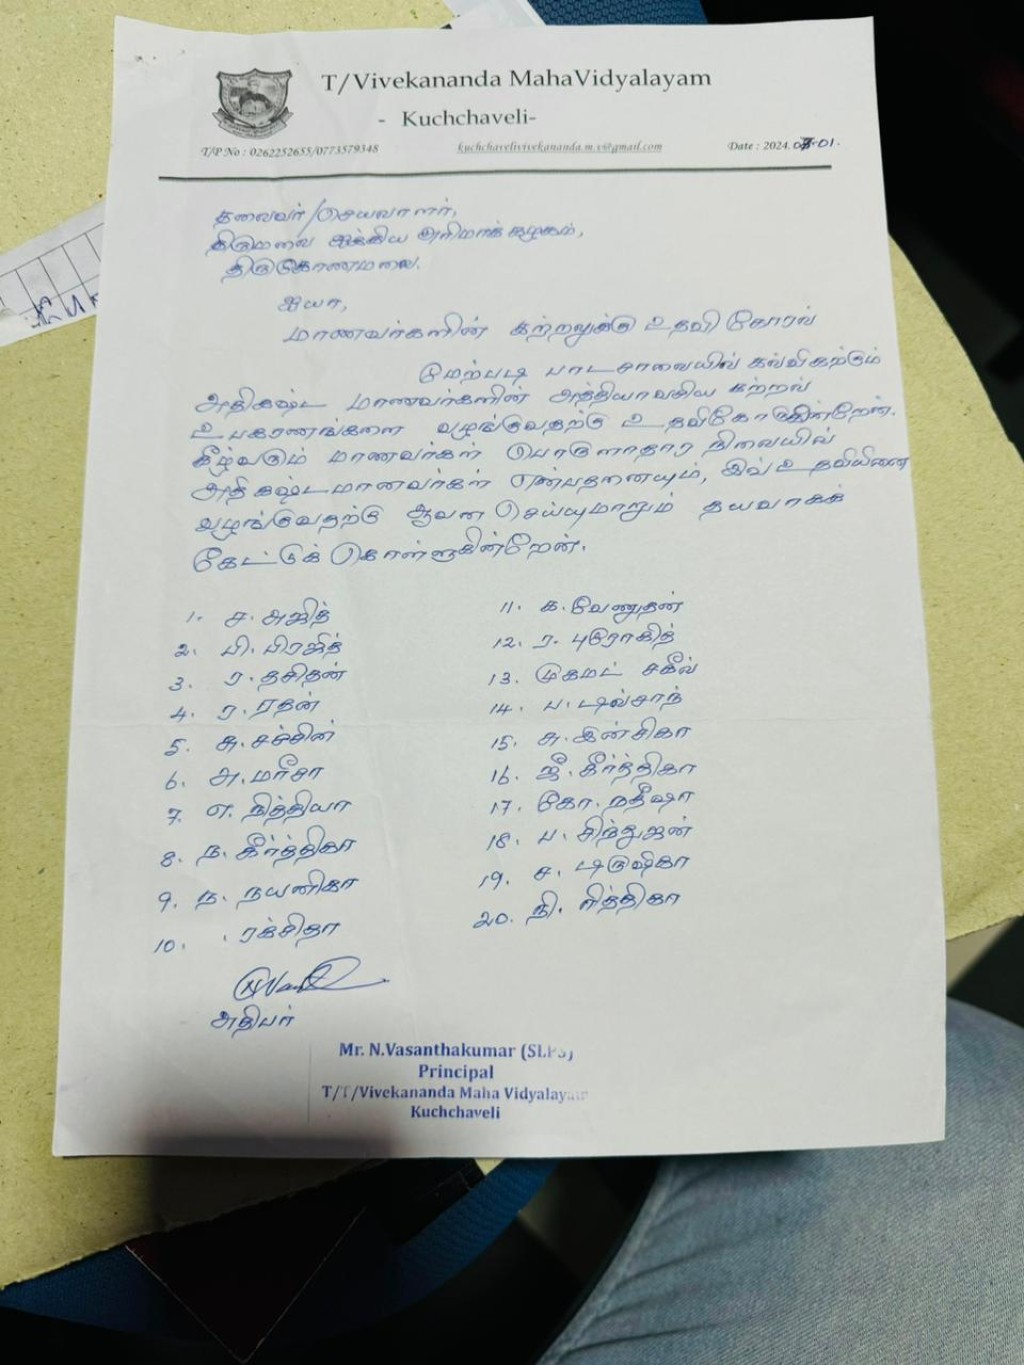 T/Vivekananda MahaVidyalayam
- Kuchchaveli-
T/P No : 0262252655/0773579348 kuchchavelivivekananda.m.v@gmail.com Date : 2024.03.01.
தலைவர் /செயலாளர்,
திருமலை ஐக்கிய அரிமாக் கழகம்,
திருகோணமலை.
ஐயா,
மாணவர்களின் கற்றலுக்கு உதவி கோரல்
மேற்படி பாடசாலையில் கல்விகற்கும்
அதிகஷ்ட மாணவர்களின் அத்தியாவசிய கற்றல்
உபகரணங்களை வழங்குவதற்கு உதவிகோருகின்றேன்.
கீழ்வரும் மாணவர்கள் பொருளாதார நிலையில்
அதிகஷ்டமானவர்கள் என்பதனையும், இவ் உதவியினை
வழங்குவதற்கு ஆவன செய்யுமாறும் தயவாகக்
கேட்டுக் கொள்ளுகின்றேன்.
1. ச. அஜித்
2. பி. பிரஜித்
3. ர. தசிதன்
4. ர. ரதன்
5. சு. சச்சின்
6. அ. மரீசா
7. எ. நித்தியா
8. ந. கீர்த்திகா
9. ந. நயனிகா
10. . ரக்சிதா
11. க. வேணுதன்
12. ர. புரோகித்
13. முகமட் சகீல்
14. ப. டில்சாந்
15. சு. இன்சிகா
16. ஜீ. கீர்த்திகா
17. கோ. நதீஷா
18. ப. சிந்துஜன்
19. ச. டிருஷிகா
20. நி. ரித்திகா
அதிபர்
Mr. N.Vasanthakumar (SLPS)
Principal
T/T/Vivekananda Maha Vidyalayam
Kuchchaveli